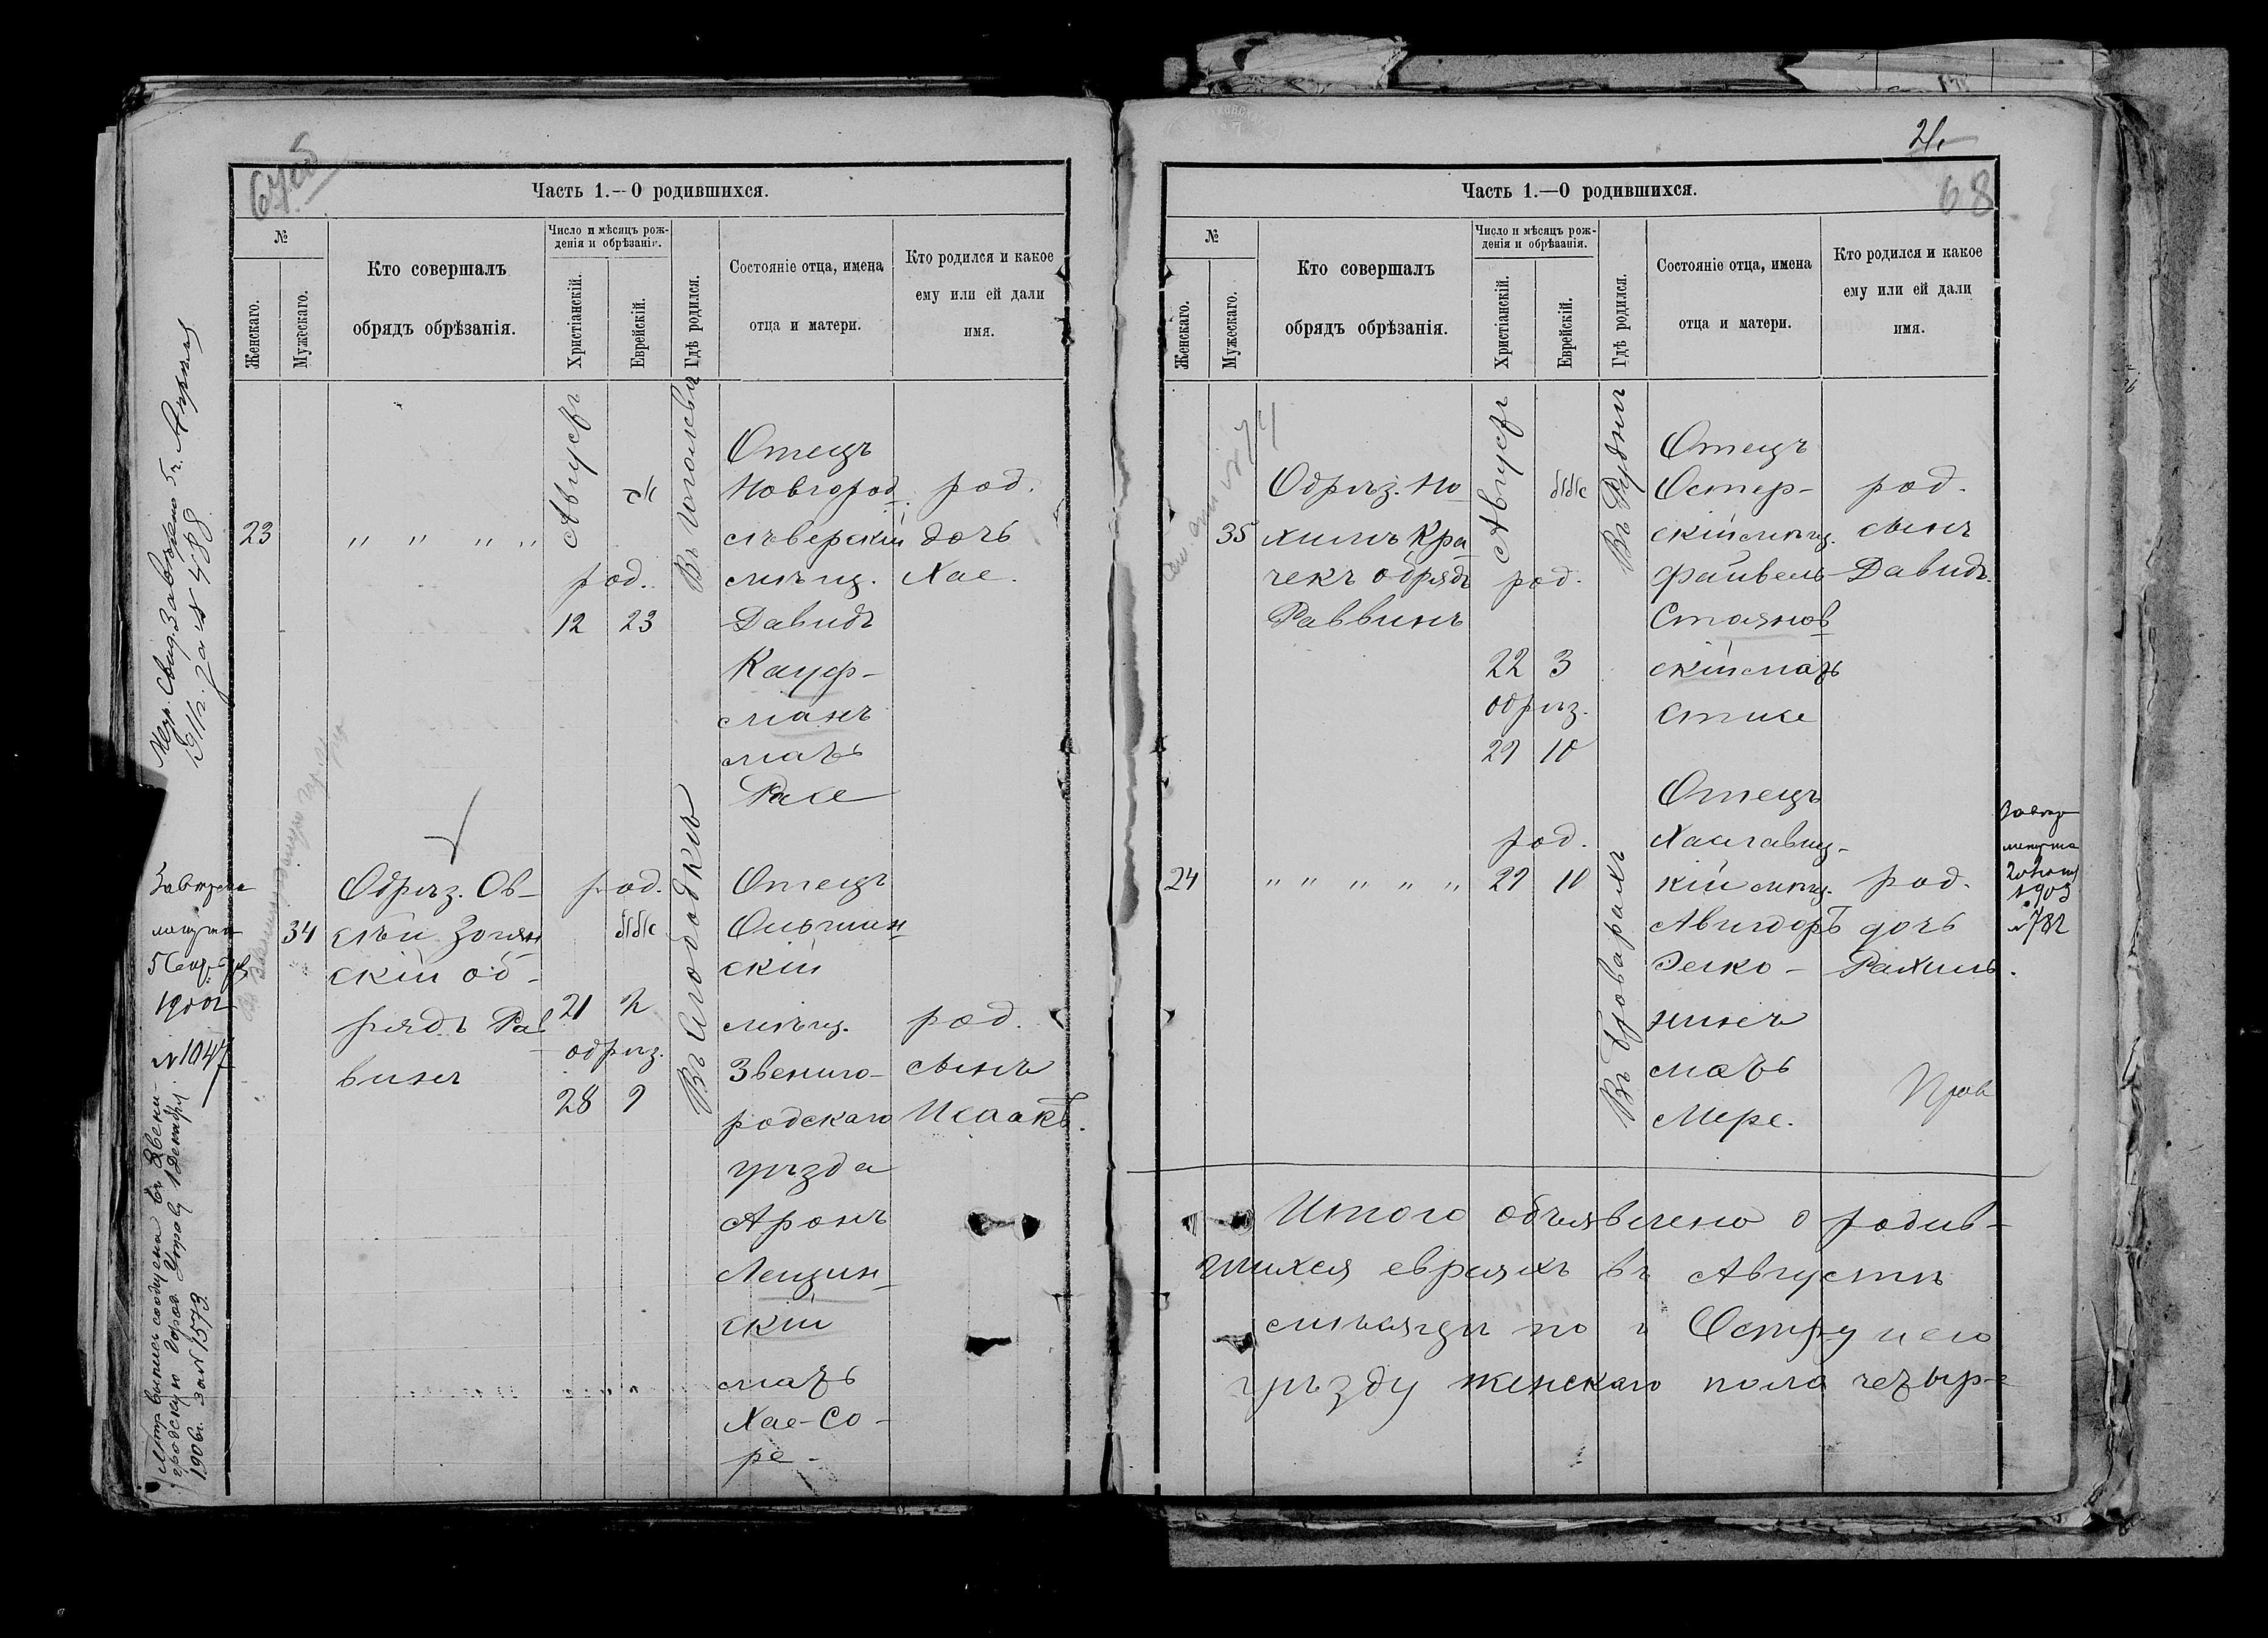 67об
Часть 1.—О родившихся.
№
Женскаго.
Мужескаго.
Кто совершалъ
обрядъ обрѣзанія.
Число и мѣсяцъ рож-
денія и обрѣзанія.
Христіанскій.
Еврейскій.
Гдѣ родился.
Состояніе отца, имена
отца и матери.
Кто родился и какое
ему или ей дали
имя.
23
" " " "
Августъ
род.
12 23
Отецъ
Новгород
сѣверскій
мѣщ.
Давидъ
Кауф-
манъ
мать
Расе
род.
дочь
Хае.
34
Обрѣз. Ов-
сѣй
скій об-
рядъ Рав
винъ
род.
21 2
обрѣз.
28 9
Въ Слободкѣ
Отецъ
Ольшан
скій
мѣщ.
Звениго-
родскаго
уѣзда
Аронъ
Лещин
скій
мать
Хае-Со-
ре.
род.
сынъ
Исаакъ.
1911г. за № 488
5 Сент
№ 1047
Метр выпись сообщена въ Звени-
городскую Город. Управу 1 Декабря
1906г. за № 1573.
21.
68
Часть 1.—О родившихся.
№
Женскаго.
Мужескаго.
Кто совершалъ
обрядъ обрѣзанія.
Число и мѣсяцъ рож-
денія и обрѣзанія.
Христіанскій.
Еврейскій.
Гдѣ родился.
Состояніе отца, имена
отца и матери.
Кто родился и какое
ему или ей дали
имя.
35
Обрѣз. Но
химъ Кра
чекъ обрядъ
Раввинъ
Августъ
род.
22 3
обрѣз.
29 10
Въ Рудни
Отецъ
Остер-
скій мѣщ.
Файвель
Стоянов
скій мать
род.
сынъ
Давидъ.
24
" " " " "
род.
29 10
Отецъ
Хаславиц-
кій мѣщ.
Авигдоръ
мать
Мере.
род.
дочь
Рахиль.
1903
№ 782
Итого объявлено о родив-
шихся евреяхъ въ Августѣ
мѣсяцѣ по г Остру и его
уѣзду женскаго пола четыр-